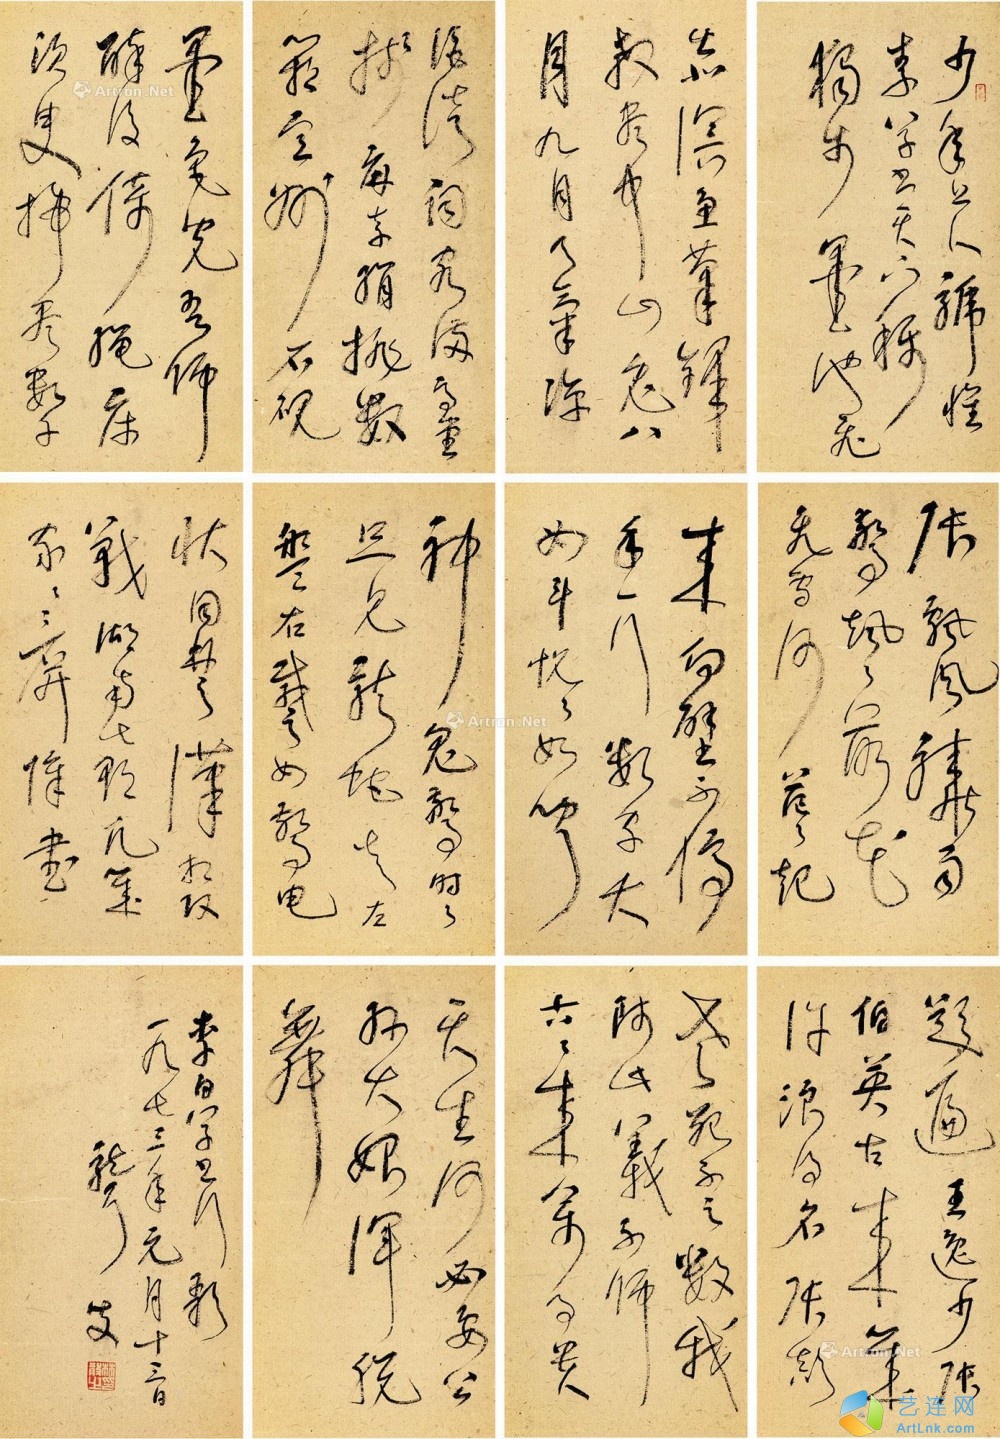 少年上人號懷
素草書天下稱
獨步墨池飛
出北溟魚筆鋒
殺盡中山兔八
月九月天氣涼
酒徒詞客滿高堂
牋麻素絹排數
箱宣州石硯
墨色光吾師
醉後倚繩床
須臾掃盡數千
張飄風驟雨
驚颯颯落花
飛雪何茫茫起
來向壁不停
手一行數字大
如斗怳怳如聞
神鬼驚時時
只見龍蛇走左
盤右蹙如驚電
狀同楚漢相攻
戰湖南七郡凡幾
家家家屏障書
題遍王逸少張
伯英古來幾
許浪得名張顛
老死不足數我
師此義不師
古古來萬事貴
天生何必要公
孫大娘渾脫
舞
李白草書行歌
一九七三年元月十三日
聾叟
Artron.Net
Artron.Net
Artron.Net
艺连网
ArtLnk.com